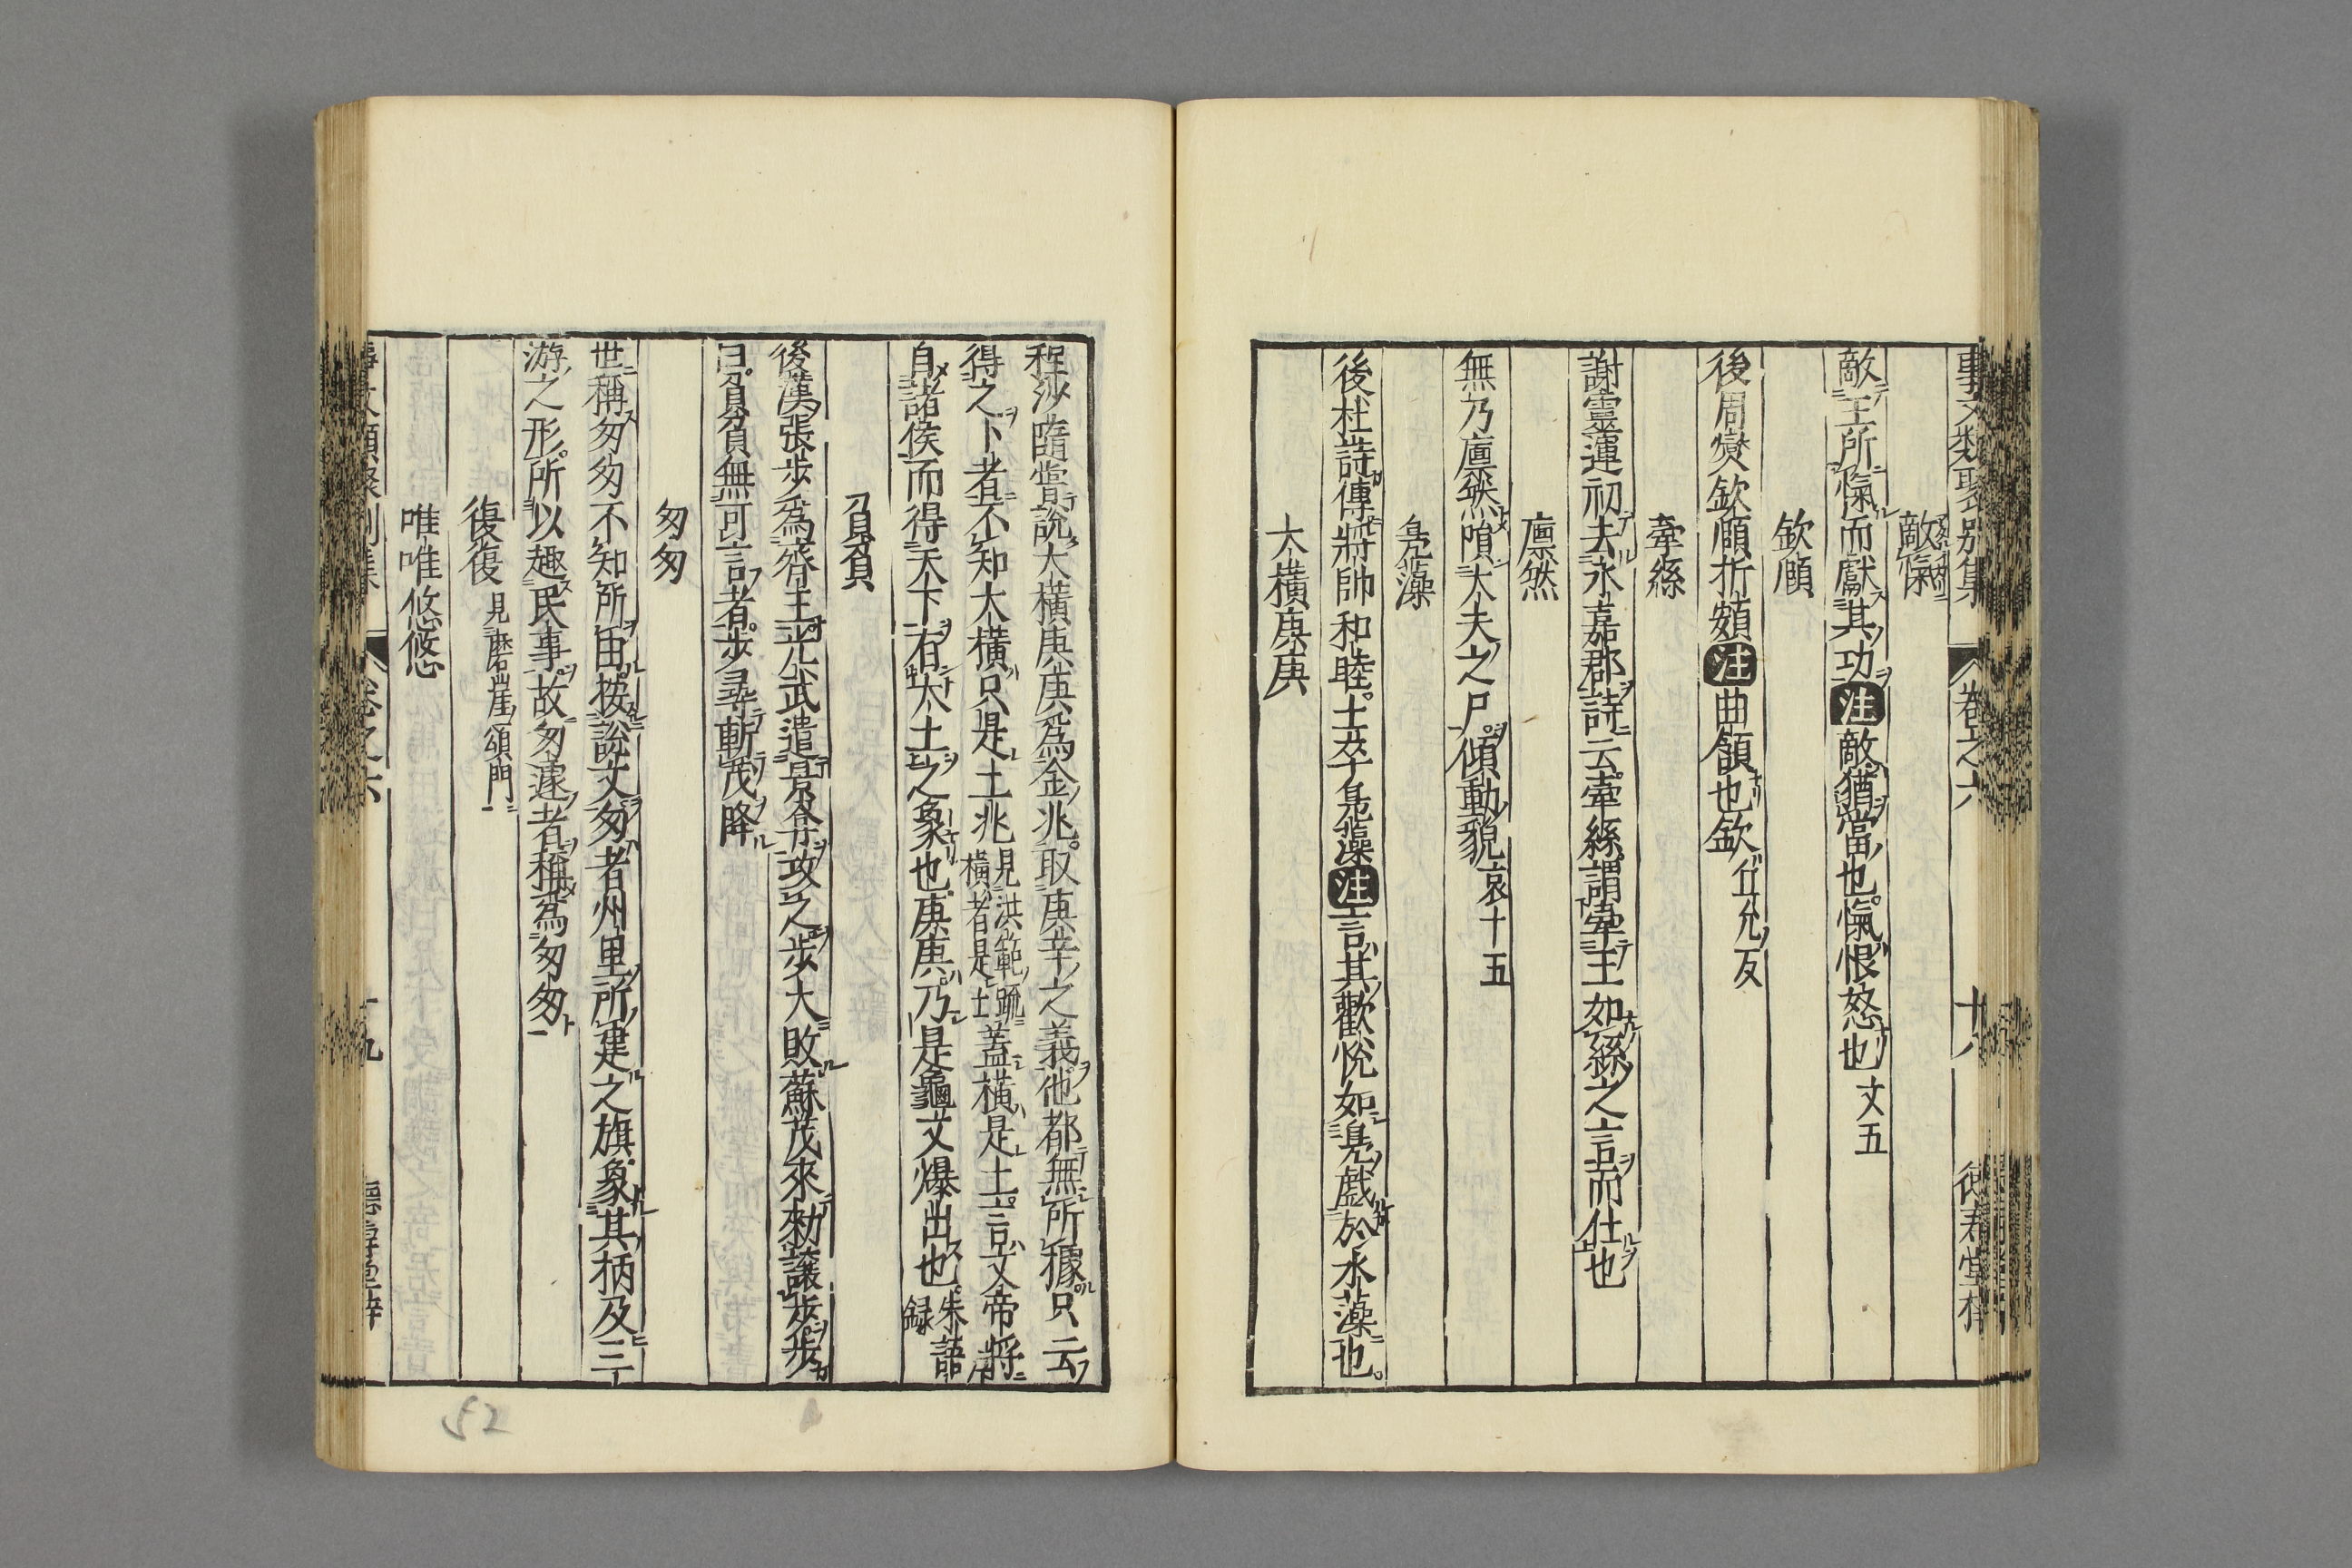 事文類聚別集 卷之六 十八
敵愾
敵王所愾而獻其功注敵猶當也愾恨怒也文五
欽頤
後周燮欽頤折頞注曲頷也欽丘凢反
牽絲
謝靈運初去永嘉郡詩云牽絲謂牽王如絲之言而仕也
廩然
無乃廩然隕大夫之尸傾動貌哀十五
鳧藻
後杜詩傳將帥和睦。士卒鳧藻注言其歡悅如鳧戲於水藻也。
大橫庚庚
程沙隨嘗說大橫庚庚爲金兆。取庚辛之義他都無所據。只云
得之卜者不知大橫只是土兆見洪範疏橫者是土蓋橫是土。言文帝將
自諸侯而得天下有大土之象也庚庚。乃是龜文爆出也。朱語錄
負負
後漢張步爲齊王光武遣景弇攻之步大敗蘇茂來勑讓步。步
曰。負負無可言者。步尋斬茂降
匆匆
世稱匆匆不知所由。按說文匆者州里所建之旗象其柄及三
游之形。所以趣民事。故匆遽者稱爲匆匆
復復見磨崖頌門
唯唯悠悠
卷之六